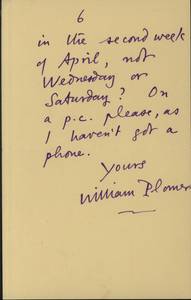 6
in the second week
of April, not
Wednesday or
Saturday? On
a p.c. please, as
I haven't got a
phone.
Yours
William Plomer